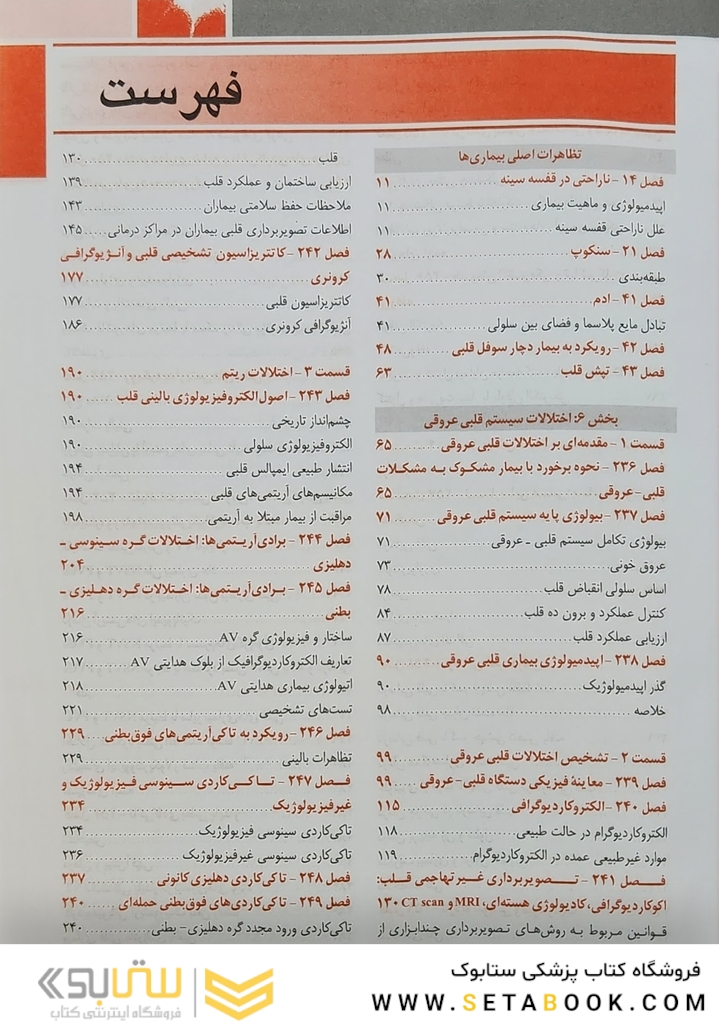 فهرست
تظاهرات اصلی بیماری‌ها
فصل ۱۴ - ناراحتی در قفسه سینه ........ ۱۱
اپیدمیولوژی و ماهیت بیماری ........ ۱۱
علل ناراحتی قفسه سینه ........ ۱۱
فصل ۲۱ - سنکوپ ........ ۲۸
طبقه‌بندی ........ ۳۰
فصل ۴۱ - ادم ........ ۴۱
تبادل مایع پلاسما و فضای بین سلولی ........ ۴۱
فصل ۴۲ - رویکرد به بیمار دچار سوفل قلبی ........ ۴۸
فصل ۴۳ - تپش قلب ........ ۶۳
بخش ۶: اختلالات سیستم قلبی عروقی
قسمت ۱ - مقدمه‌ای بر اختلالات قلبی عروقی ........ ۶۵
فصل ۲۳۶ - نحوه برخورد با بیمار مشکوک به مشکلات
قلبی - عروقی ........ ۶۵
فصل ۲۳۷ - بیولوژی پایه سیستم قلبی عروقی ........ ۷۱
بیولوژی تکامل سیستم قلبی ـ عروقی ........ ۷۱
عروق خونی ........ ۷۳
اساس سلولی انقباض قلب ........ ۷۸
کنترل عملکرد و برون ده قلب ........ ۸۴
ارزیابی عملکرد قلب ........ ۸۷
فصل ۲۳۸ - اپیدمیولوژی بیماری قلبی عروقی ........ ۹۰
گذر اپیدمیولوژیک ........ ۹۰
خلاصه ........ ۹۸
قسمت ۲ - تشخیص اختلالات قلبی عروقی ........ ۹۹
فصل ۲۳۹ - معاینهٔ فیزیکی دستگاه قلبی - عروقی ........ ۹۹
فصل ۲۴۰ - الکتروکاردیوگرافی ........ ۱۱۵
الکتروکاردیوگرام در حالت طبیعی ........ ۱۱۸
موارد غیرطبیعی عمده در الکتروکاردیوگرام ........ ۱۱۹
فصل ۲۴۱ - تصویربرداری غیرتهاجمی قلب:
اکوکاردیوگرافی، کادیولوژی هسته‌ای، MRI و CT scan ۱۳۰
قوانین مربوط به روش‌های تصویربرداری چندابزاری از
قلب ........ ۱۳۰
ارزیابی ساختمان و عملکرد قلب ........ ۱۳۹
ملاحظات حفظ سلامتی بیماران ........ ۱۴۳
اطلاعات تصویربرداری قلبی بیماران در مراکز درمانی ........ ۱۴۵
فصل ۲۴۲ - کاتتریزاسیون تشخیصی قلبی و آنژیوگرافی
کرونری ........ ۱۷۷
کاتتریزاسیون قلبی ........ ۱۷۷
آنژیوگرافی کرونری ........ ۱۸۶
قسمت ۳ - اختلالات ریتم ........ ۱۹۰
فصل ۲۴۳ - اصول الکتروفیزیولوژی بالینی قلب ........ ۱۹۰
چشم‌انداز تاریخی ........ ۱۹۰
الکتروفیزیولوژی سلولی ........ ۱۹۰
انتشار طبیعی ایمپالس قلبی ........ ۱۹۴
مکانیسم‌های آریتمی‌های قلبی ........ ۱۹۴
مراقبت از بیمار مبتلا به آریتمی ........ ۱۹۸
فصل ۲۴۴ - برادی‌آریتمی‌ها: اختلالات گره سینوسی ـ
دهلیزی ........ ۲۰۴
فصل ۲۴۵ - برادی‌آریتمی‌ها: اختلالات گره دهلیزی ـ
بطنی ........ ۲۱۶
ساختار و فیزیولوژی گره AV ........ ۲۱۶
تعاریف الکتروکاردیوگرافیک از بلوک هدایتی AV ........ ۲۱۷
اتیولوژی بیماری هدایتی AV ........ ۲۱۸
تست‌های تشخیصی ........ ۲۲۱
فصل ۲۴۶ - رویکرد به تاکی‌آریتمی‌های فوق‌بطنی ........ ۲۲۹
تظاهرات بالینی ........ ۲۲۹
فصل ۲۴۷ - تاکی‌کاردی سینوسی فیزیولوژیک و
غیرفیزیولوژیک ........ ۲۳۴
تاکی‌کاردی سینوسی فیزیولوژیک ........ ۲۳۴
تاکی‌کاردی سینوسی غیرفیزیولوژیک ........ ۲۳۶
فصل ۲۴۸ - تاکی‌کاردی دهلیزی کانونی ........ ۲۳۷
فصل ۲۴۹ - تاکی‌کاردی‌های فوق‌بطنی حمله‌ای ........ ۲۴۰
تاکی‌کاردی ورود مجدد گره دهلیزی - بطنی ........ ۲۴۰
فروشگاه کتاب پزشکی ستابوک
WWW.SETABOOK.COM
ستابوک
فروشگاه اینترنتی کتاب